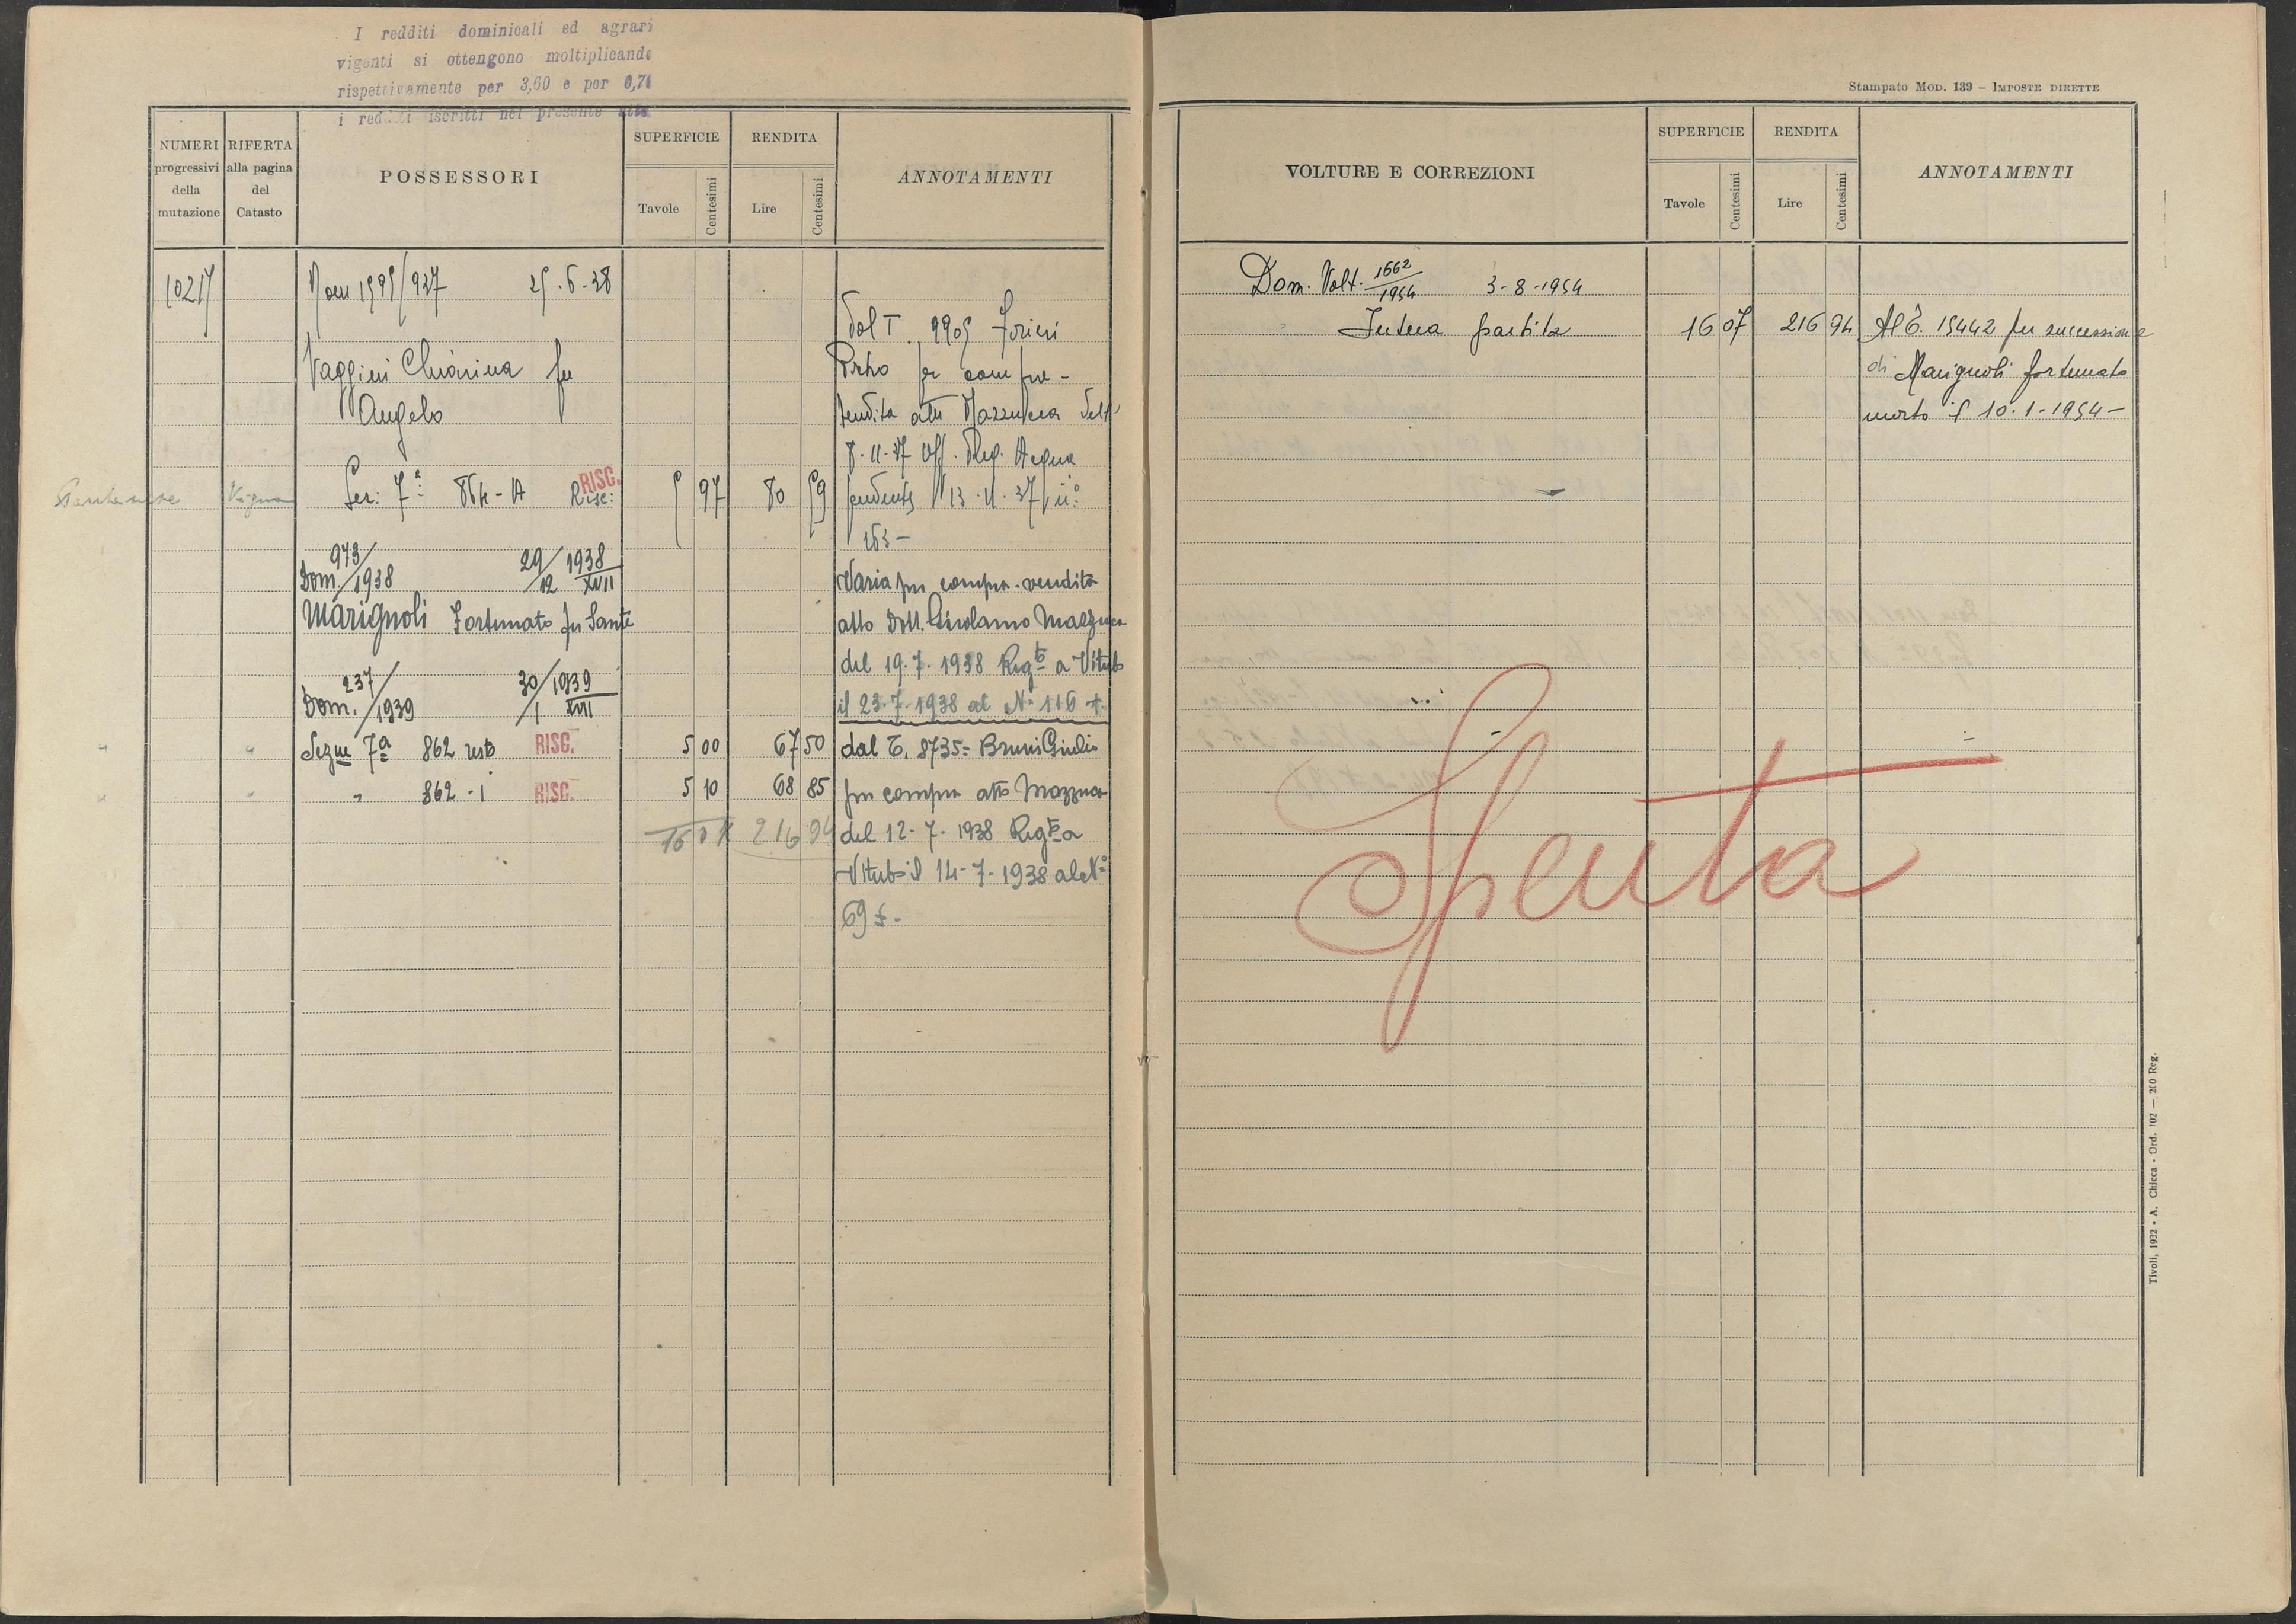 I redditi dominicali ed agrari
vigenti si ottengono moltiplicando
rispettivamente per 3,60 e per
i redditi iscritti nel presente atto
NUMERI progressivi della mutazione
RIFERTA alla pagina del Catasto
POSSESSORI
SUPERFICIE
Tavole
Centesimi
RENDITA
Lire
Centesimi
ANNOTAMENTI
10217
25.6.38
Dal T. 9905 Frieri
per compra-
Vaggini Chiarina fu
vendita atto Mazzucca
Angelo
8.11.37 Uff. Reg. Acqua
Sez: 7ª 864-A Risc: RISC. 5 97 80 59 pendente 13.11.37 n°
Vigna
163-
Dom. 973/1938 29/12 1938 XVII
Varia per compra-vendita
Marignoli Fortunato fu Sante
atto Dott. Girolamo Mazzucca
del 19.7.1938 Regto a Viterbo
Dom. 237/1939 30/1 1939 XVII
il 23.7.1938 al N° 116
Sezne 7ª 862 resto RISC. 5 00 67 50 dal T. 8735= Bruni Giulio
" 862-i RISC. 5 10 68 85 per compra atto Mazzucca
16 07 216 94 del 12-7-1938 Regto a
Viterbo il 14-7-1938 al N°
69
Stampato Mod. 139 – Imposte dirette
VOLTURE E CORREZIONI
SUPERFICIE
Tavole
Centesimi
RENDITA
Lire
Centesimi
ANNOTAMENTI
Dom. Volt. 1662/1954 3-8-1954
Intera partita 16 07 216 94 Al T. 15442 per successione
di Marignoli Fortunato
morto il 10-1-1954-
Spenta
Tivoli, 1932 - A. Chicca - Ord. 102 — 200 Reg.